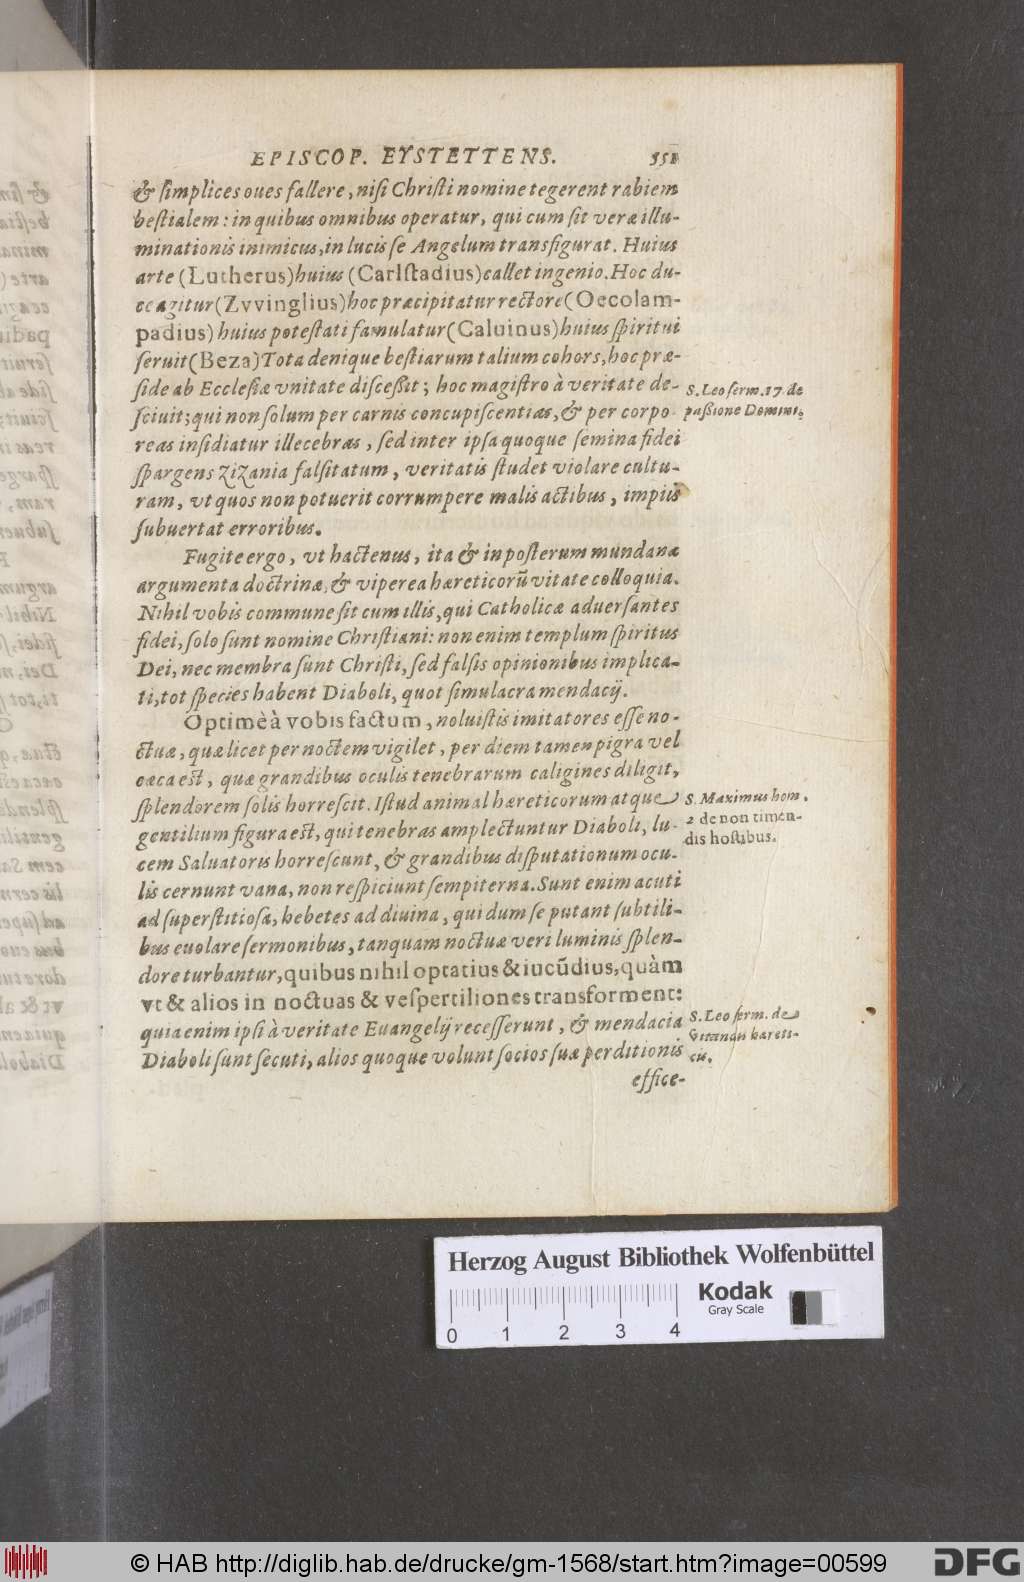 EPISCOP. EYSTETTENS. 551
& ſimplices oues fallere, niſi Chriſti nomine tegerent rabiem
beſtialem: in quibus omnibus operatur, qui cum ſit veræ illu-
minationis inimicus, in lucis ſe Angelum transfigurat. Huius
arte (Lutherus) huius (Carlſtadius) callet ingenio. Hoc du-
ce agitur (Zvvinglius) hoc præcipitatur rectore (Oecolam-
padius) huius poteſtati famulatur (Caluinus) huius ſpiritui
ſeruit (Beza) Tota denique beſtiarum talium cohors, hoc præ-
ſide ab Eccleſiæ vnitate diſceßit; hoc magiſtro à veritate de-
ſciuit; qui non ſolum per carnis concupiſcentias, & per corpo
reas inſidiatur illecebras, ſed inter ipſa quoque ſemina fidei
ſpargens zizania falſitatum, veritatis ſtudet violare cultu-
ram, vt quos non potuerit corrumpere malis actibus, impiis
ſubuertat erroribus.
S. Leo ſerm. 17 de
paßione Domini.
Fugite ergo, vt hactenus, ita & inpoſterum mundanæ
argumenta doctrinæ, & viperea hæreticorũ vitate colloquia.
Nihil vobis commune ſit cum illis, qui Catholicæ aduerſantes
fidei, ſolo ſunt nomine Chriſtiani: non enim templum ſpiritus
Dei, nec membra ſunt Chriſti, ſed falſis opinionibus implica-
ti, tot ſpecies habent Diaboli, quot ſimulacra mendacij.
Optimè à vobis factum, noluiſtis imitatores eſſe no-
ctuæ, quæ licet per noctem vigilet, per diem tamen pigra vel
cæca est, quæ grandibus oculis tenebrarum caligines diligit,
ſplendorem ſolis horreſcit. Iſtud animal hæreticorum atque
gentilium figura est, qui tenebras amplectuntur Diaboli, lu-
cem Saluatoris horreſcunt, & grandibus diſputationum ocu-
lis cernunt vana, non reſpiciunt ſempiterna. Sunt enim acuti
ad ſuperſtitioſa, hebetes ad diuina, qui dum ſe putant ſubtili-
bus euolare ſermonibus, tanquam noctuæ veri luminis ſplen-
dore turbantur, quibus nihil optatius & iucũdius, quàm
vt & alios in noctuas & veſpertiliones transforment:
quia enim ipſi à veritate Euangelij receſſerunt, & mendacia
Diaboli ſunt ſecuti, alios quoque volunt ſocios ſuæ perditionis
effice-
S. Maximus hom.
2 de non timen-
dis hoſtibus.
S. Leo ſerm. de
vitandis hæreti-
cis.
Herzog August Bibliothek Wolfenbüttel
Kodak
Gray Scale
0 1 2 3 4
© HAB http://diglib.hab.de/drucke/gm-1568/start.htm?image=00599
DFG